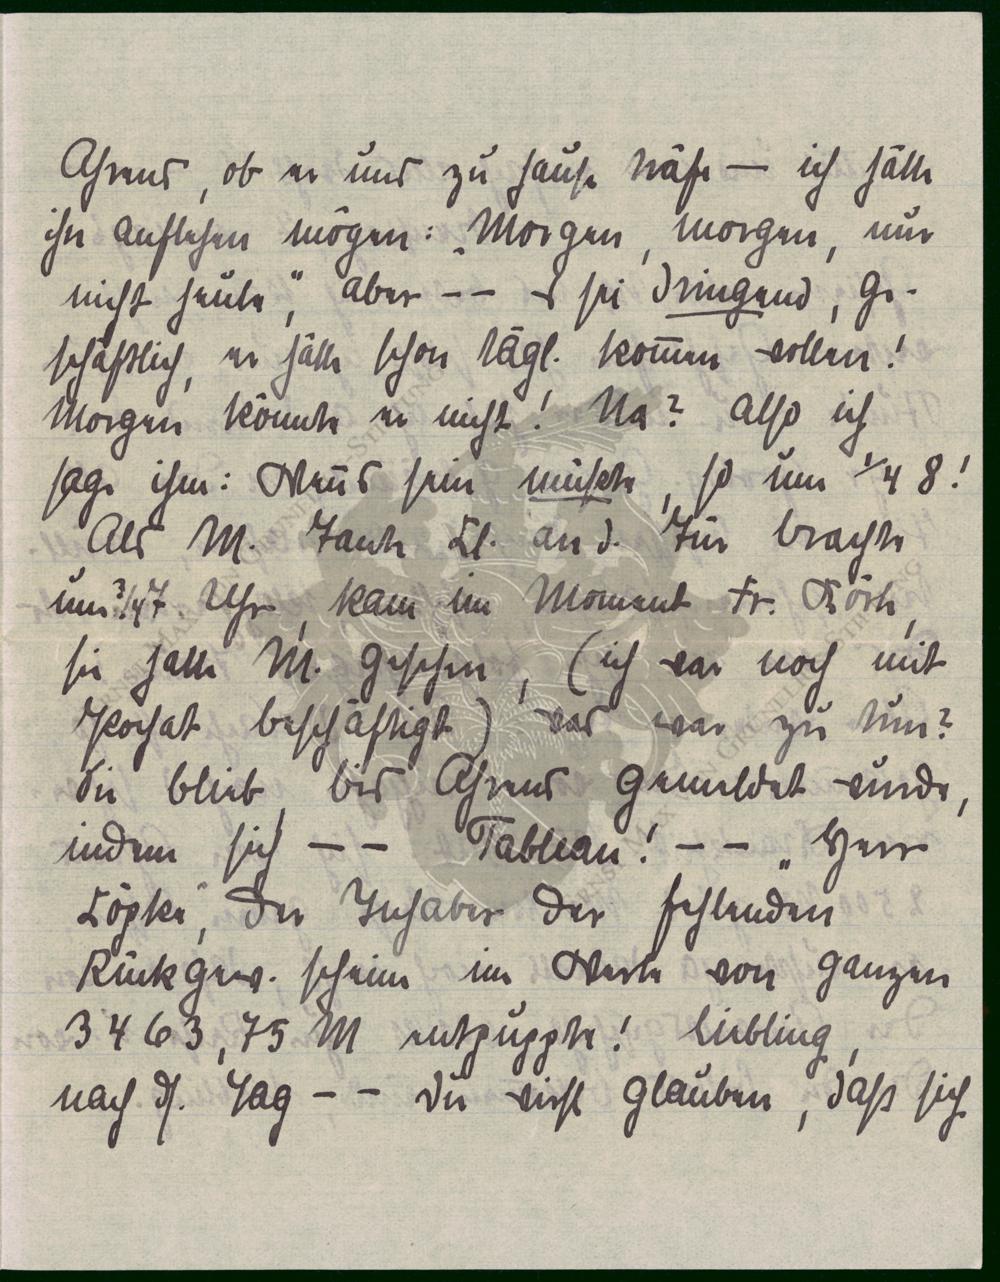 Ahrens, ob er uns zu Hause träfe — ich hätte
ihn anflehen mögen: „Morgen, morgen, nur
nicht heute“, aber -- es sei dringend, ge-
schäftlich, er hätte schon tägl. kom̄en wollen!
Morgen könnte er nicht! Na? Also ich
sage ihm: Wen̄s sein müsste, so um 1/4 8!
Als M. Tante El. an d. Tür brachte
um 3/4 7. Uhr, kam im Moment Fr. Dörte,
sie hatte M. gesehen, (ich war noch mit
Kochat beschäftigt) was war zu tun?
Sie blieb, bis Ahrens gemeldet wurde,
indem sich -- Tableau! -- „Herr
Löpke“, der Inhaber der fehlenden
Rückgew. scheine im Werte von ganzen
3463,75 M entpuppte! Liebling,
nach ds. Tag -- Du wirst glauben, daß sich
ERNST MAX VON GRUNELIUS STIFTUNG